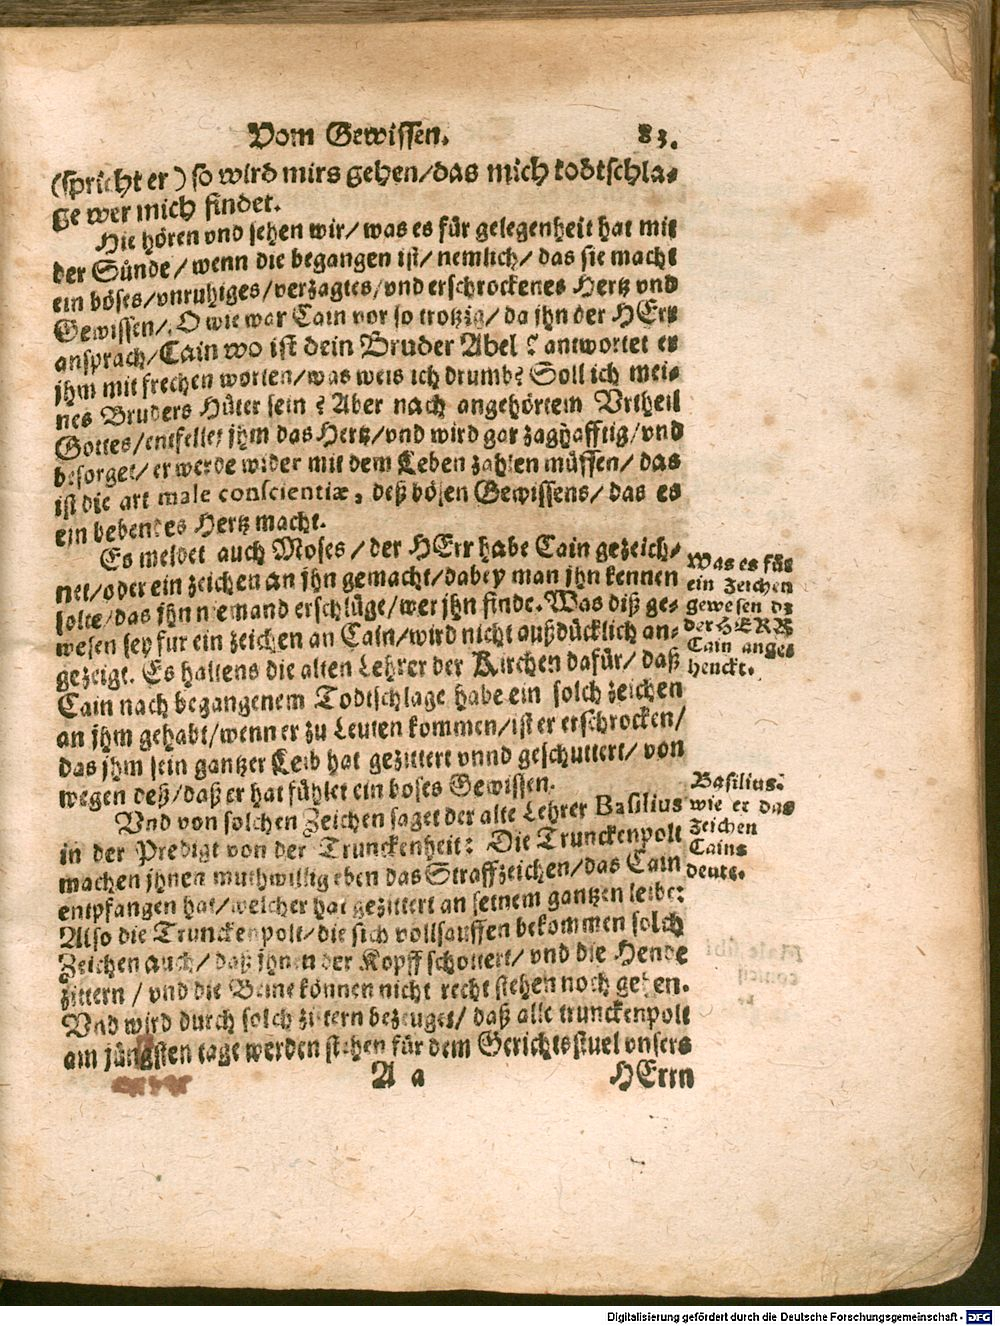 Vom Gewissen. 83.
(spricht er) so wird mirs gehen/das mich todtschla-
ge wer mich findet.
Hie hören vnd sehen wir/ was es für gelegenheit hat mit
der Sünde/ wenn die begangen ist/ nemlich/ das sie macht
ein böses/vnruhiges/verzagtes/vnd erschrockenes Hertz vnd
Gewissen/. O wie war Cain vor so trotzig/ da jhn der HErr
ansprach/Cain wo ist dein Bruder Abel? antwortet er
jhm mit frechen worten/was weis ich drumb? Soll ich mei-
nes Bruders Hüter sein? Aber nach angehörtem Vrtheil
Gottes/entfellet jhm das Hertz/vnd wird gar zaghafftig/vnd
besorget/ er werde wider mit dem Leben zahlen müssen/ das
ist die art male conscientiæ, deß bösen Gewissens/ das es
ein bebendes Hertz macht.
Es meldet auch Moses/ der HErr habe Cain gezeich-
net/oder ein zeichen an jhn gemacht/dabey man jhn kennen
solte/das jhn niemand erschlüge/wer jhn finde. Was diß ge-
wesen sey fur ein zeichen an Cain/wird nicht außdücklich an-
gezeigt. Es haltens die alten Lehrer der Kirchen dafür/ daß
Cain nach begangenem Todtschlage habe ein solch zeichen
an jhm gehabt/wenn er zu Leuten kommen/ist er erschrocken/
das jhm sein gantzer Leib hat gezittert vnnd geschuttert/ von
wegen deß/daß er hat fühlet ein boses Gewissen.
Was es für
ein Zeichen
gewesen dz
der HERR
Cain anges
henckt.
Vnd von solchen Zeichen saget der alte Lehrer Basilius
in der Predigt von der Trunckenheit: Die Trunckenpolt
machen jhnen muthwillig eben das Straffzeichen/das Cain
entpfangen hat/welcher hat gezittert an seinem gantzen leibe:
Also die Trunckenpolt/die sich vollsauffen bekommen solch
Zeichen auch/ daß jhnen der Kopff schottert/ vnd die Hende
zittern/ vnd die Beine können nicht recht stehen noch gehen.
Vnd wird durch solch zittern bezeuget/ daß alle trunckenpolt
am jüngsten tage werden stehen für dem Gerichtsstuel vnsers
Basilius.
wie er das
Zeichen
Cains
deute.
A a HErrn
Digitalisierung gefördert durch die Deutsche Forschungsgemeinschaft - DFG